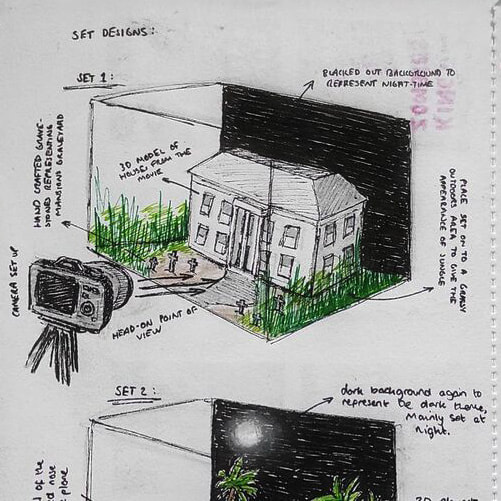 SET DESIGNS:
SET 1:
BLACKED OUT BACKGROUND TO
REPRESENT NIGHT-TIME
HAND CRAFTED GRAVE-
STONES REPRESENTING
MANSIONS GRAVEYARD
3D MODEL OF
HOUSES FROM THE
MOVIE
PLACE SET ON TO A GRASSY
OUTDOORS AREA TO GIVE THE
APPEARANCE OF JUNGLE
CAMERA SET UP
HEAD-ON POINT OF
VIEW
SET 2:
dark background again to
represent the dark theme,
Mainly set at
night.
of the
nose
plane
3D